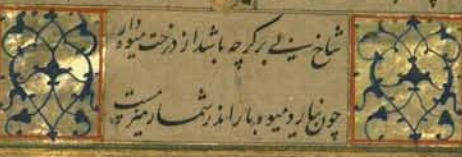 شاخ بی بر گرچه باشد از درخت میوه دار
چون نیارد میوه بار اندر شمار میزم است